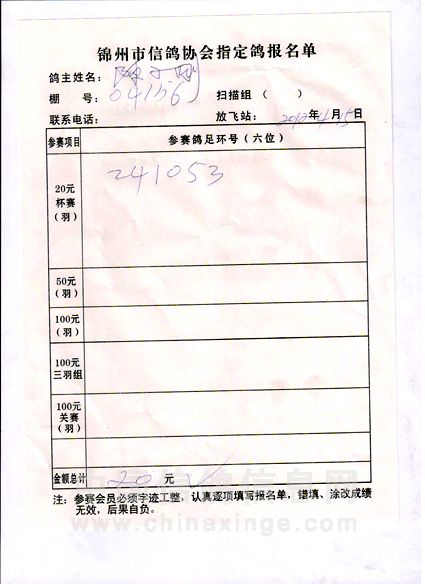 锦州市信鸽协会指定鸽报名单
鸽主姓名：陈
棚 号：041569 扫描组（ ）
联系电话： 放飞站：2012年 月15日
参赛项目 参赛鸽足环号（六位）
20元杯赛（羽） 241053
50元（羽）
100元（羽）
100元三羽组
100元关赛（羽）
金额总计 20 元
注：参赛会员必须字迹工整，认真逐项填写报名单，错填、涂改成绩
无效，后果自负。
www.chinaxinge.com